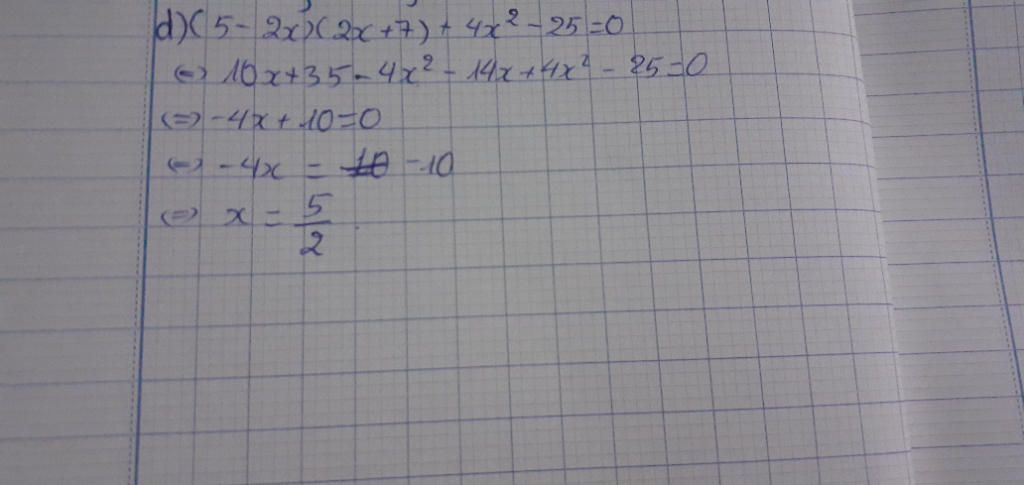 d) (5 - 2x)(2x + 7) + 4x² - 25 = 0
(=) 10x + 35 - 4x² - 14x + 4x² - 25 = 0
(=) -4x + 10 = 0
(=) -4x = ~~10~~ -10
(=) x = 5/2